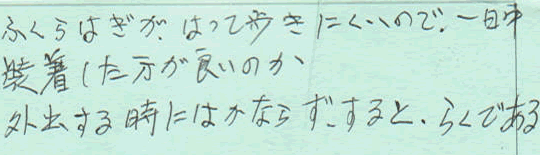 ふくらはぎが、はって歩きにくいので、一日中
装着した方が良いのか
外出する時にはかならず、すると、らくである